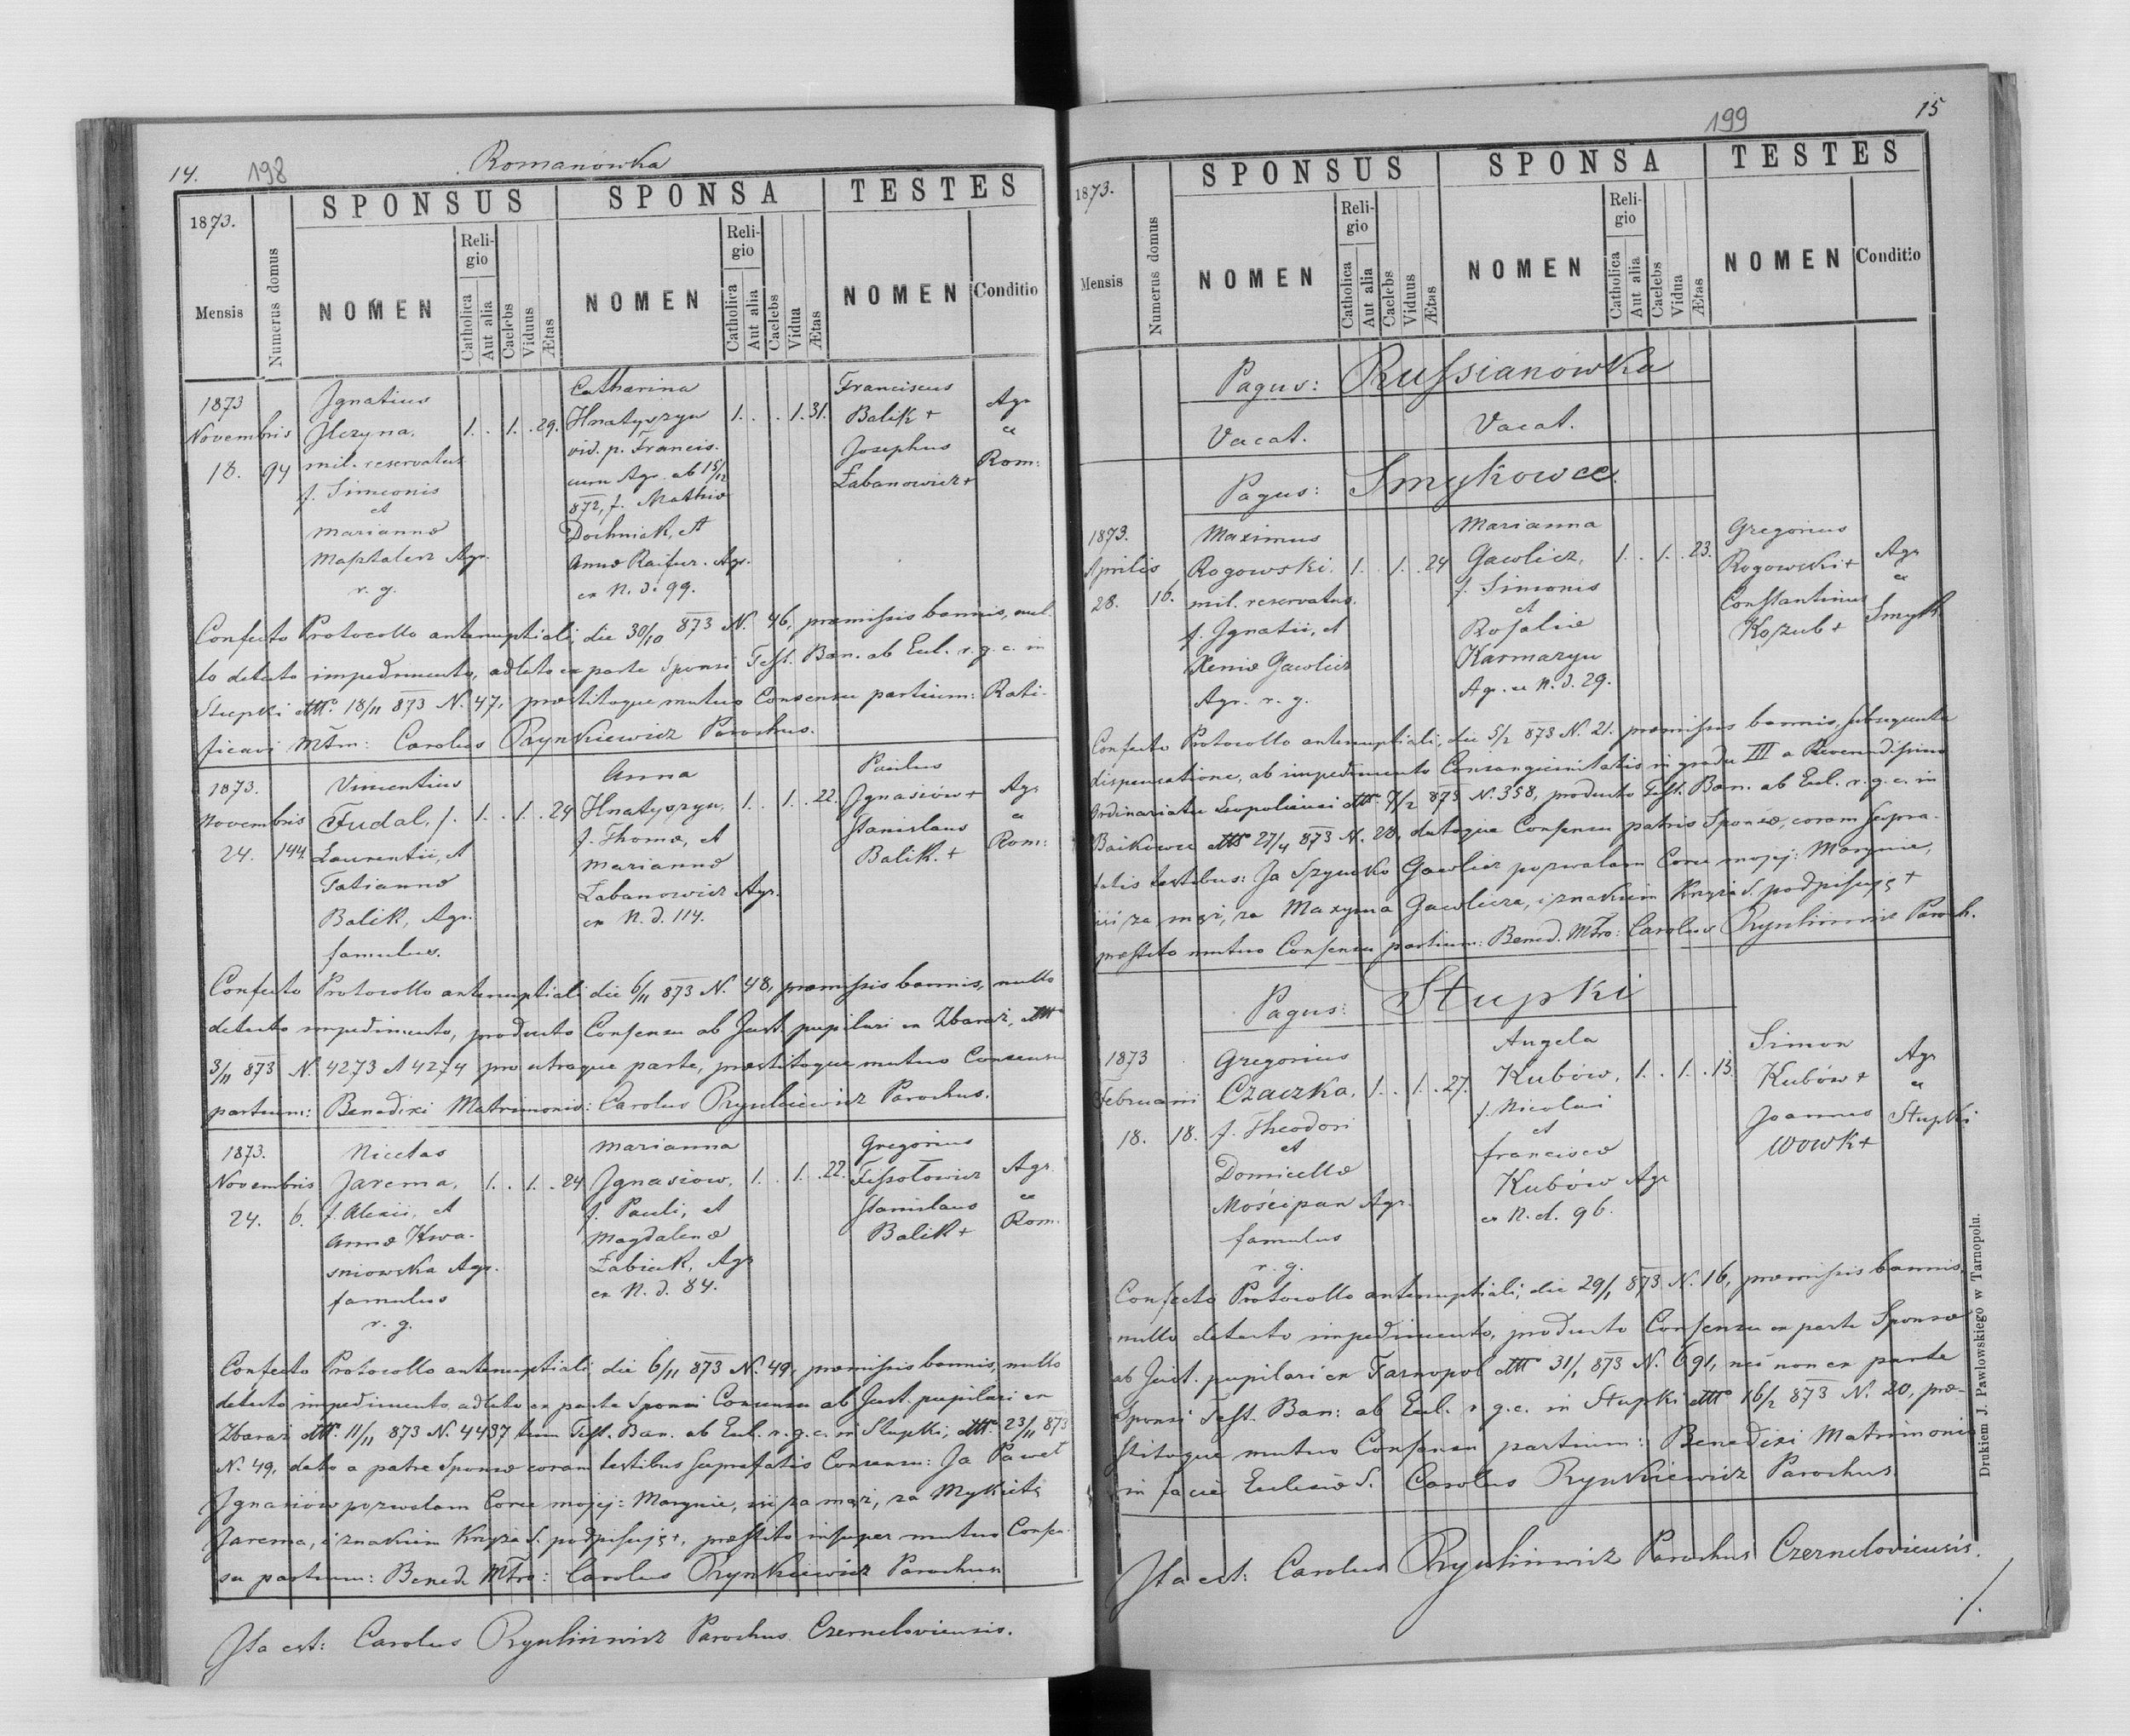 14. 198 Romanowka
SPONSUS SPONSA TESTES
1873.
Mensis Numerus domus NOMEN Religio Catholica Aut alia Caelebs Viduus Ætas NOMEN Religio Catholica Aut alia Caelebs Vidua Ætas NOMEN Conditio
1873 Ignatius Catharina Franciscus
Novembris Ilczyna, 1. . 1. . 29. Hnatyszyn 1. . . 1. 31. Balik + Agr
18. 94 mil. reservatus vid. p. Francis- Josephus "
f. Simeonis cum Agr. ab 15/12 Łabanowicz + Rom:
et 872, f. Mathiæ
Mariannæ Dochniak, et
Masztalerz Agr. Annæ Raifur. Agr.
r. g. ex N. d. 99.
Confecto Protocollo antenuptiali, die 30/10 873 N. 46, præmissis bannis, nul-
lo detecto impedimento, adlato ex parte Sponsi Test. Ban. ab Eccl. r. g. c. in
Stupki dtto 18/11 873 N. 47, præstitoque mutuo Consensu partium: Rati-
ficavi Mtm: Carolus Rynkiewicz Parochus.
1873. Vincentius Anna Paulus
Novembris Fudal, f. 1. . 1. . 24 Hnatyszyn, 1. . 1. . 22. Ignasiów + Agr
24. 144. Laurentii, et f. Thomæ, et Stanislaus "
Tatiannæ Mariannæ Balik. + Rom:
Balik, Agr. Łabanowicz Agr.
famulus. ex N. d. 114.
Confecto Protocollo antenuptiali die 6/11 873 N. 48, præmissis bannis, nullo
detecto impedimento, producto Consensu ab Jud. pupilari ex Zbaraż, dtto
3/11 873 N. 4273 et 4274 pro utraque parte, præstitoque mutuo Consensu
partium: Benedixi Matrimonio: Carolus Rynkiewicz Parochus.
1873. Nicetas Marianna Gregorius
Novembris Jarema, 1. . 1. . 24 Ignasiow, 1. . 1. . 22. Fessołowicz Agr.
24. 6. f. Alexii, et f. Pauli, et Stanislaus "
Annæ Kwa- Magdalenæ Balik + Rom.
sniowska Agr. Łabiak, Agr
famulus ex N. d. 84.
r. g.
Confecto Protocollo antenuptiali, die 6/11 873 N. 49, præmissis bannis, nullo
detecto impedimento, adlato ex parte Sponsi Consensu ab Jud. pupilari ex
Zbaraż dtto 11/11 873 N. 4437 tum Test. Ban. ab Eccl. r. g. c. in Stupki, dtto 23/11 873
N. 49, dato a patre Sponsæ coram testibus suprafatis Consensu: Ja Paweł
Ignasiów pozwalam Corce mojej: Marynie, iśi za mąż, za Mykietę
Jarema, i znakiem Krzyża S. podpisuję +, præstito insuper mutuo Consen-
su partium: Bened. Mtro: Carolus Rynkiewicz Parochus
Ita est: Carolus Rynkiewicz Parochus Czerneloviensis.
199 15
SPONSUS SPONSA TESTES
1873.
Mensis Numerus domus NOMEN Religio Catholica Aut alia Caelebs Viduus Ætas NOMEN Religio Catholica Aut alia Caelebs Vidua Ætas NOMEN Conditio
Pagus: Russianówka
Vacat. Vacat.
Pagus: Smykowce
1873. Maximus Marianna Gregorius
Aprilis Rogowski. 1. . 1. . 24 Gawlicz, 1. . 1. . 23. Rogowski + Agr
28. 16. mil. reservatus. f. Simonis Constantinus "
f. Ignatii, et et Koszub + Smyk
Xeniæ Gawlicz Rosaliæ
Agr. r. g. Karmazyn
Agr. ex N. d. 29.
Confecto Protocollo antenuptiali, die 5/2 873 N. 21. præmissis bannis, subsequente
dispensatione, ab impedimento Consanguinitatis in gradu III a Reverendissimo
Ordinariatu Leopoliensi dtto 7/2 873 N. 358, producto Test. Ban. ab Eccl. r. g. c. in
Baikowce dtto 27/4 873 N. 28, datoque Consensu patris Sponsæ, coram supra-
fatis testibus: Ja Szymko Gawlicz pozwalam Corce mojej: Marynie,
iśi za mąż, za Maxyma Gawlicza, i znakiem Krzyża S. podpisuję +
præstito mutuo Consensu partium: Bened. Mtro: Carolus Rynkiewicz Paroch.
Pagus: Stupki
1873 Gregorius Angela Simon
Februarii Czaczka, 1. . 1. . 27. Kubów, 1. . 1. . 13. Kubów + Agr
18. 18. f. Theodori f. Nicolai Joannes "
et et Wowk + Stupki
Domicellæ Franciscæ
Mościpan Agr. Kubów Agr
famulus ex N. d. 96.
r. g.
Confecto Protocollo antenuptiali, die 29/1 873 N. 16, præmissis bannis,
nullo detecto impedimento, producto Consensu ex parte Sponsæ
ab Jud. pupilari ex Tarnopol dtto 31/1 873 N. 691, nec non ex parte
Sponsi Test. Ban: ab Eccl. r. g. c. in Stupki dtto 16/2 873 N. 20, præ-
stitoque mutuo Consensu partium: Benedixi Matrimonio
in facie Ecclesiæ S. Carolus Rynkiewicz Parochus.
Ita est: Carolus Rynkiewicz Parochus Czerneloviensis.
Drukiem J. Pawłowskiego w Tarnopolu.